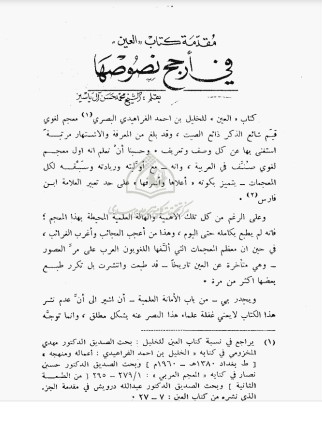 مقدمة كتاب «العين»
في أرجح نصوصها
بقلم : الشيخ محمد حسن آل ياسين
كتاب « العين » للخليل بن احمد الفراهيدي البصري (١) معجم لغوي
قيم شائع الذكر ذائع الصيت ، وقد بلغ من المعرفة والاشتهار مرتبة
استغنى بها عن كل وصف وتعريف • وحسبنا أن نعلم انه اول معجم
صنف في العربية ، وانه مع أوليته وريادته وسبقه لكل
المعجمات ـ يتميز بكونه « أعلاها وأشرفها » على حد تعبير العلامة ابن
فارس (٢) •
وعلى الرغم من كل تلك الأهمية والهالة العلمية المحيطة بهذا المعجم ؛
فانه لم يطبع بكامله حتى اليوم ، وهذا من أعجب العجائب وأغرب الغرائب ،
في حين ان معظم المعجمات التي ألفها اللغويون العرب على مر العصور
ـ وهي متأخرة عن العين تاريخاً ـ قد طبعت وانتشرت بل تكرر طبع
بعضها اكثر من مرة •
ويجدر بي ـ من باب الأمانة العلمية ـ أن اشير الى أن عدم نشر
هذا الكتاب لايعني غفلة علماء هذا العصر عنه بشكل مطلق ، وانما توجه
(١) يراجع في نسبة كتاب العين للخليل : بحث الصديق الدكتور مهدي
المخزومي في كتابه « الخليل بن احمد الفراهيدي : أعماله ومنهجه »
[ ط بغداد ١٣٨٠هـ ـ ١٩٦٠م ] وبحث الصديق الدكتور حسين
نصار في كتابه « المعجم العربي » : ٢٧٩/١ ـ ٢٦٥ [ من الطبعة
الثانية ] وبحث الصديق الدكتور عبدالله درويش في مقدمة الجزء
الذي نشره من كتاب العين : ٧ ـ ٢٧ •